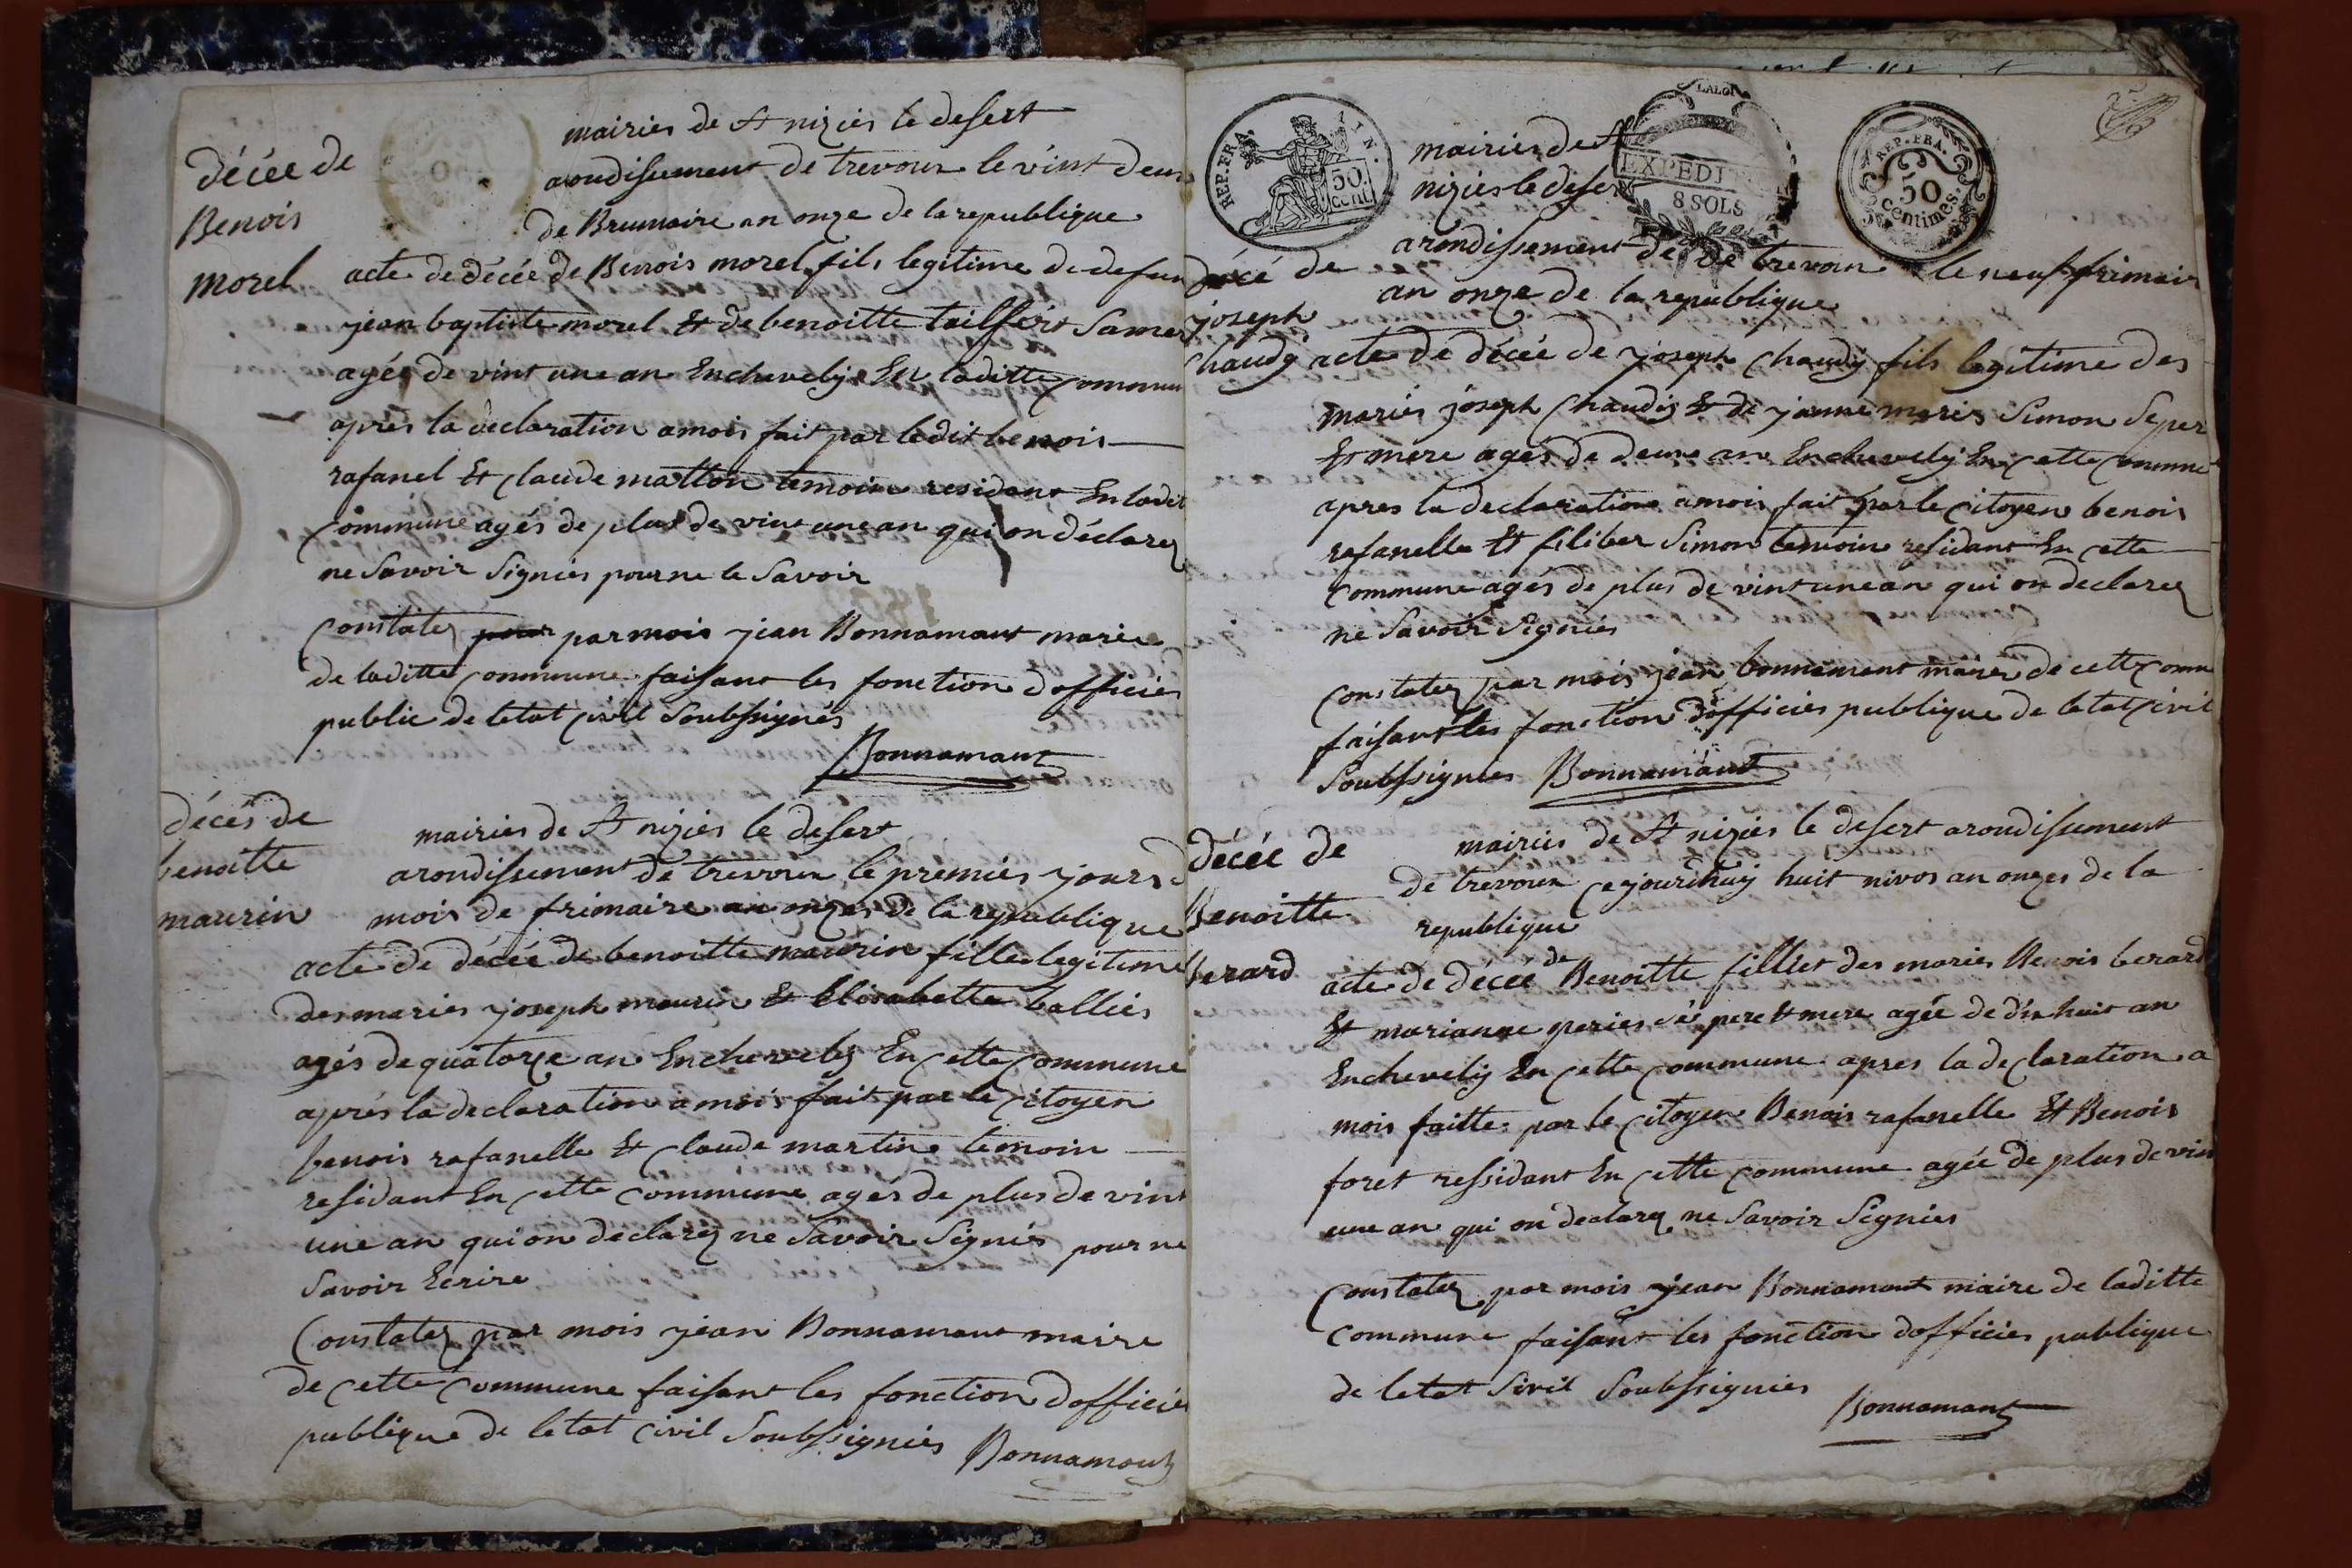 mairies de St niziés le desert
décée de
arondissement de trevoux le vint deux
Benois
de Brumaire an onze de la republique
morel
acte de décée de Benois morel fils legitime de defun
jean baptiste morel Et de benoitte tailfért Samer
agés de vint une an Enchevely En laditte commun
aprés la declaration amois fait par ledit benois
rafanel Et claude matton temoin residant En ladit
commune agés de plus de vint une an qui on déclarez
ne Savoir Signiés pour ne le Savoir
Constatez pour par mois jean Bonnamant marie
de laditte commune faisant les fonction dofficiés
public de letat civil Soubssignés
Bonnamant
décés de
benoitte
maurin
mairies de St niziés le desert
arondissement de trevoux le premiés jours d
mois de frimaire an onzes de la republique
acte de décée de benoitte maurin fille legitime
des mariés joseph maurin Et Elisabette balliés
agés de quatorze an Enchevely En cette commune
aprés la declaration amois fait par le citoyen
benois rafanelle Et claude martin temoin
residant En cette commune agés de plus de vint
une an qui on declarez ne Savoir Signiés pour ne
Savoir Ecrire
Constatez par mois jean Bonnamant maire
de cette commune faisant les fonction dofficié
publique de letat civil Soubssigniés Bonnamant
REP. FRA.
50 cent.
LA LOI
EXPEDI
8 SOLS
REP. FRA.
50
centimes.
mairies de St
niziés le deser
arondissement de de trevoux le neuf frimair
an onze de la republique
décé de
joseph
chaudy
acte de décée de joseph chaudy fils legitime des
mariés joseph chaudy Et de janne maris Simon Seper
Et mere agés de deuxe an Enchevely En cette commune
apres la declaration amois fait par le citoyen benois
rafanelle Et filiber Simon temoin residant En cette
commune agés de plus de vint une an qui on declarez
ne Savoir Signiés
Constatez par mois jean bonnamant maire de cette comm
faisant les fonction dofficiés publique de letat civil
Soubssigniés Bonnamant
décée de
Benoitte
berard
mairies de St niziés le desert arondissement
de trevoux cejourdhuy huit nivos an onzes de la
republique
acte de décée de Benoitte filliet des mariés Benois berard
Et marianne periés Sés pere Et mere agée de dix huit an
Enchevely En cette commune apres la declaration a
mois faitte par le citoyen Benois rafanelle Et Benois
foret ressidant En cette commune agée de plus de vin
une an qui on declarez ne Savoir Signiés
Constatez par mois jean Bonnamant maire de laditte
commune faisant les fonction dofficiés publique
de letat Sivil Soubssigniés
Bonnamant